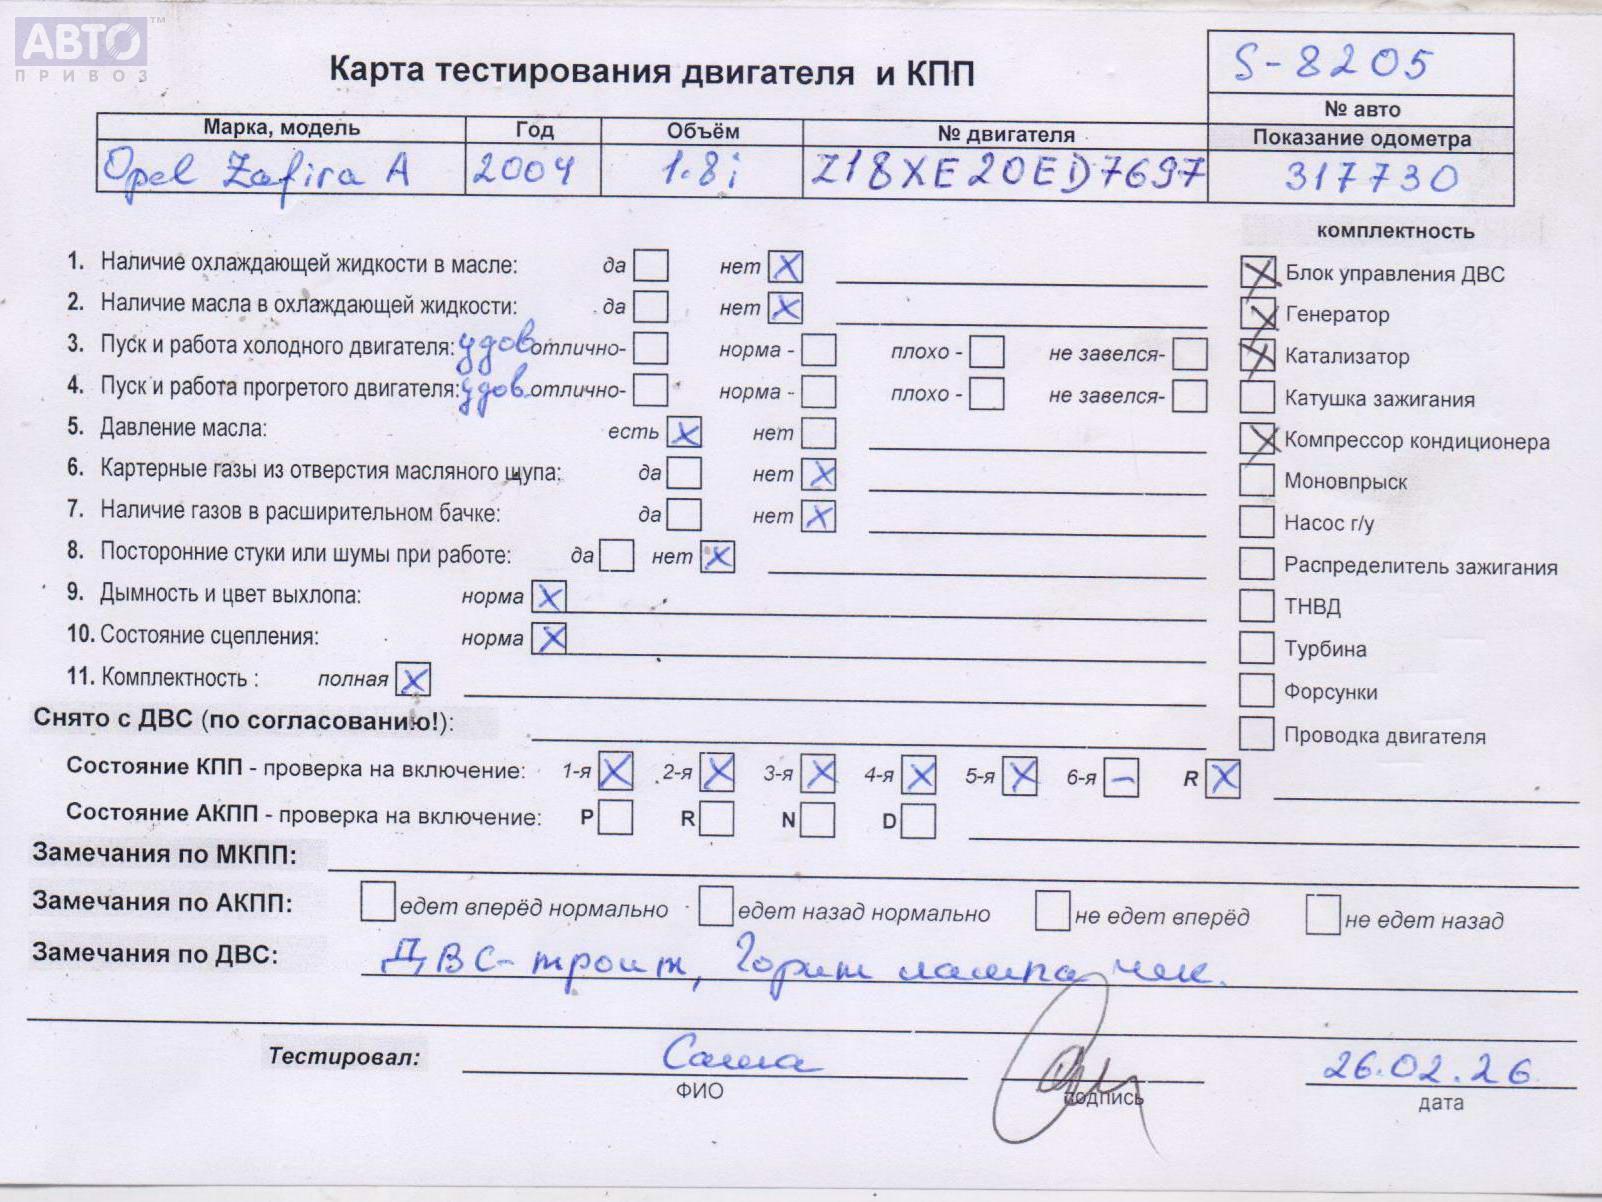 АВТО™
ПРИВОЗ
Карта тестирования двигателя и КПП
S-8205
№ авто
Марка, модель Год Объём № двигателя Показание одометра
Opel Zafira A 2004 1.8i Z18XE20ED7697 317730
комплектность
1. Наличие охлаждающей жидкости в масле: да нет X
X Блок управления ДВС
2. Наличие масла в охлаждающей жидкости: да нет X
X Генератор
3. Пуск и работа холодного двигателя: удов отлично- норма - плохо - не завелся-
X Катализатор
4. Пуск и работа прогретого двигателя: удов. отлично- норма - плохо - не завелся-
Катушка зажигания
5. Давление масла: есть X нет
X Компрессор кондиционера
6. Картерные газы из отверстия масляного щупа: да нет X
Моновпрыск
7. Наличие газов в расширительном бачке: да нет X
Насос г/у
8. Посторонние стуки или шумы при работе: да нет X
Распределитель зажигания
9. Дымность и цвет выхлопа: норма X
ТНВД
10. Состояние сцепления: норма X
Турбина
11. Комплектность : полная X
Форсунки
Снято с ДВС (по согласованию!):
Проводка двигателя
Состояние КПП - проверка на включение: 1-я X 2-я X 3-я X 4-я X 5-я X 6-я – R X
Состояние АКПП - проверка на включение: P R N D
Замечания по МКПП:
Замечания по АКПП: едет вперёд нормально едет назад нормально не едет вперёд не едет назад
Замечания по ДВС: ДВС-троит, Горит лампа чек.
Тестировал: Саша 26.02.26
ФИО подпись дата